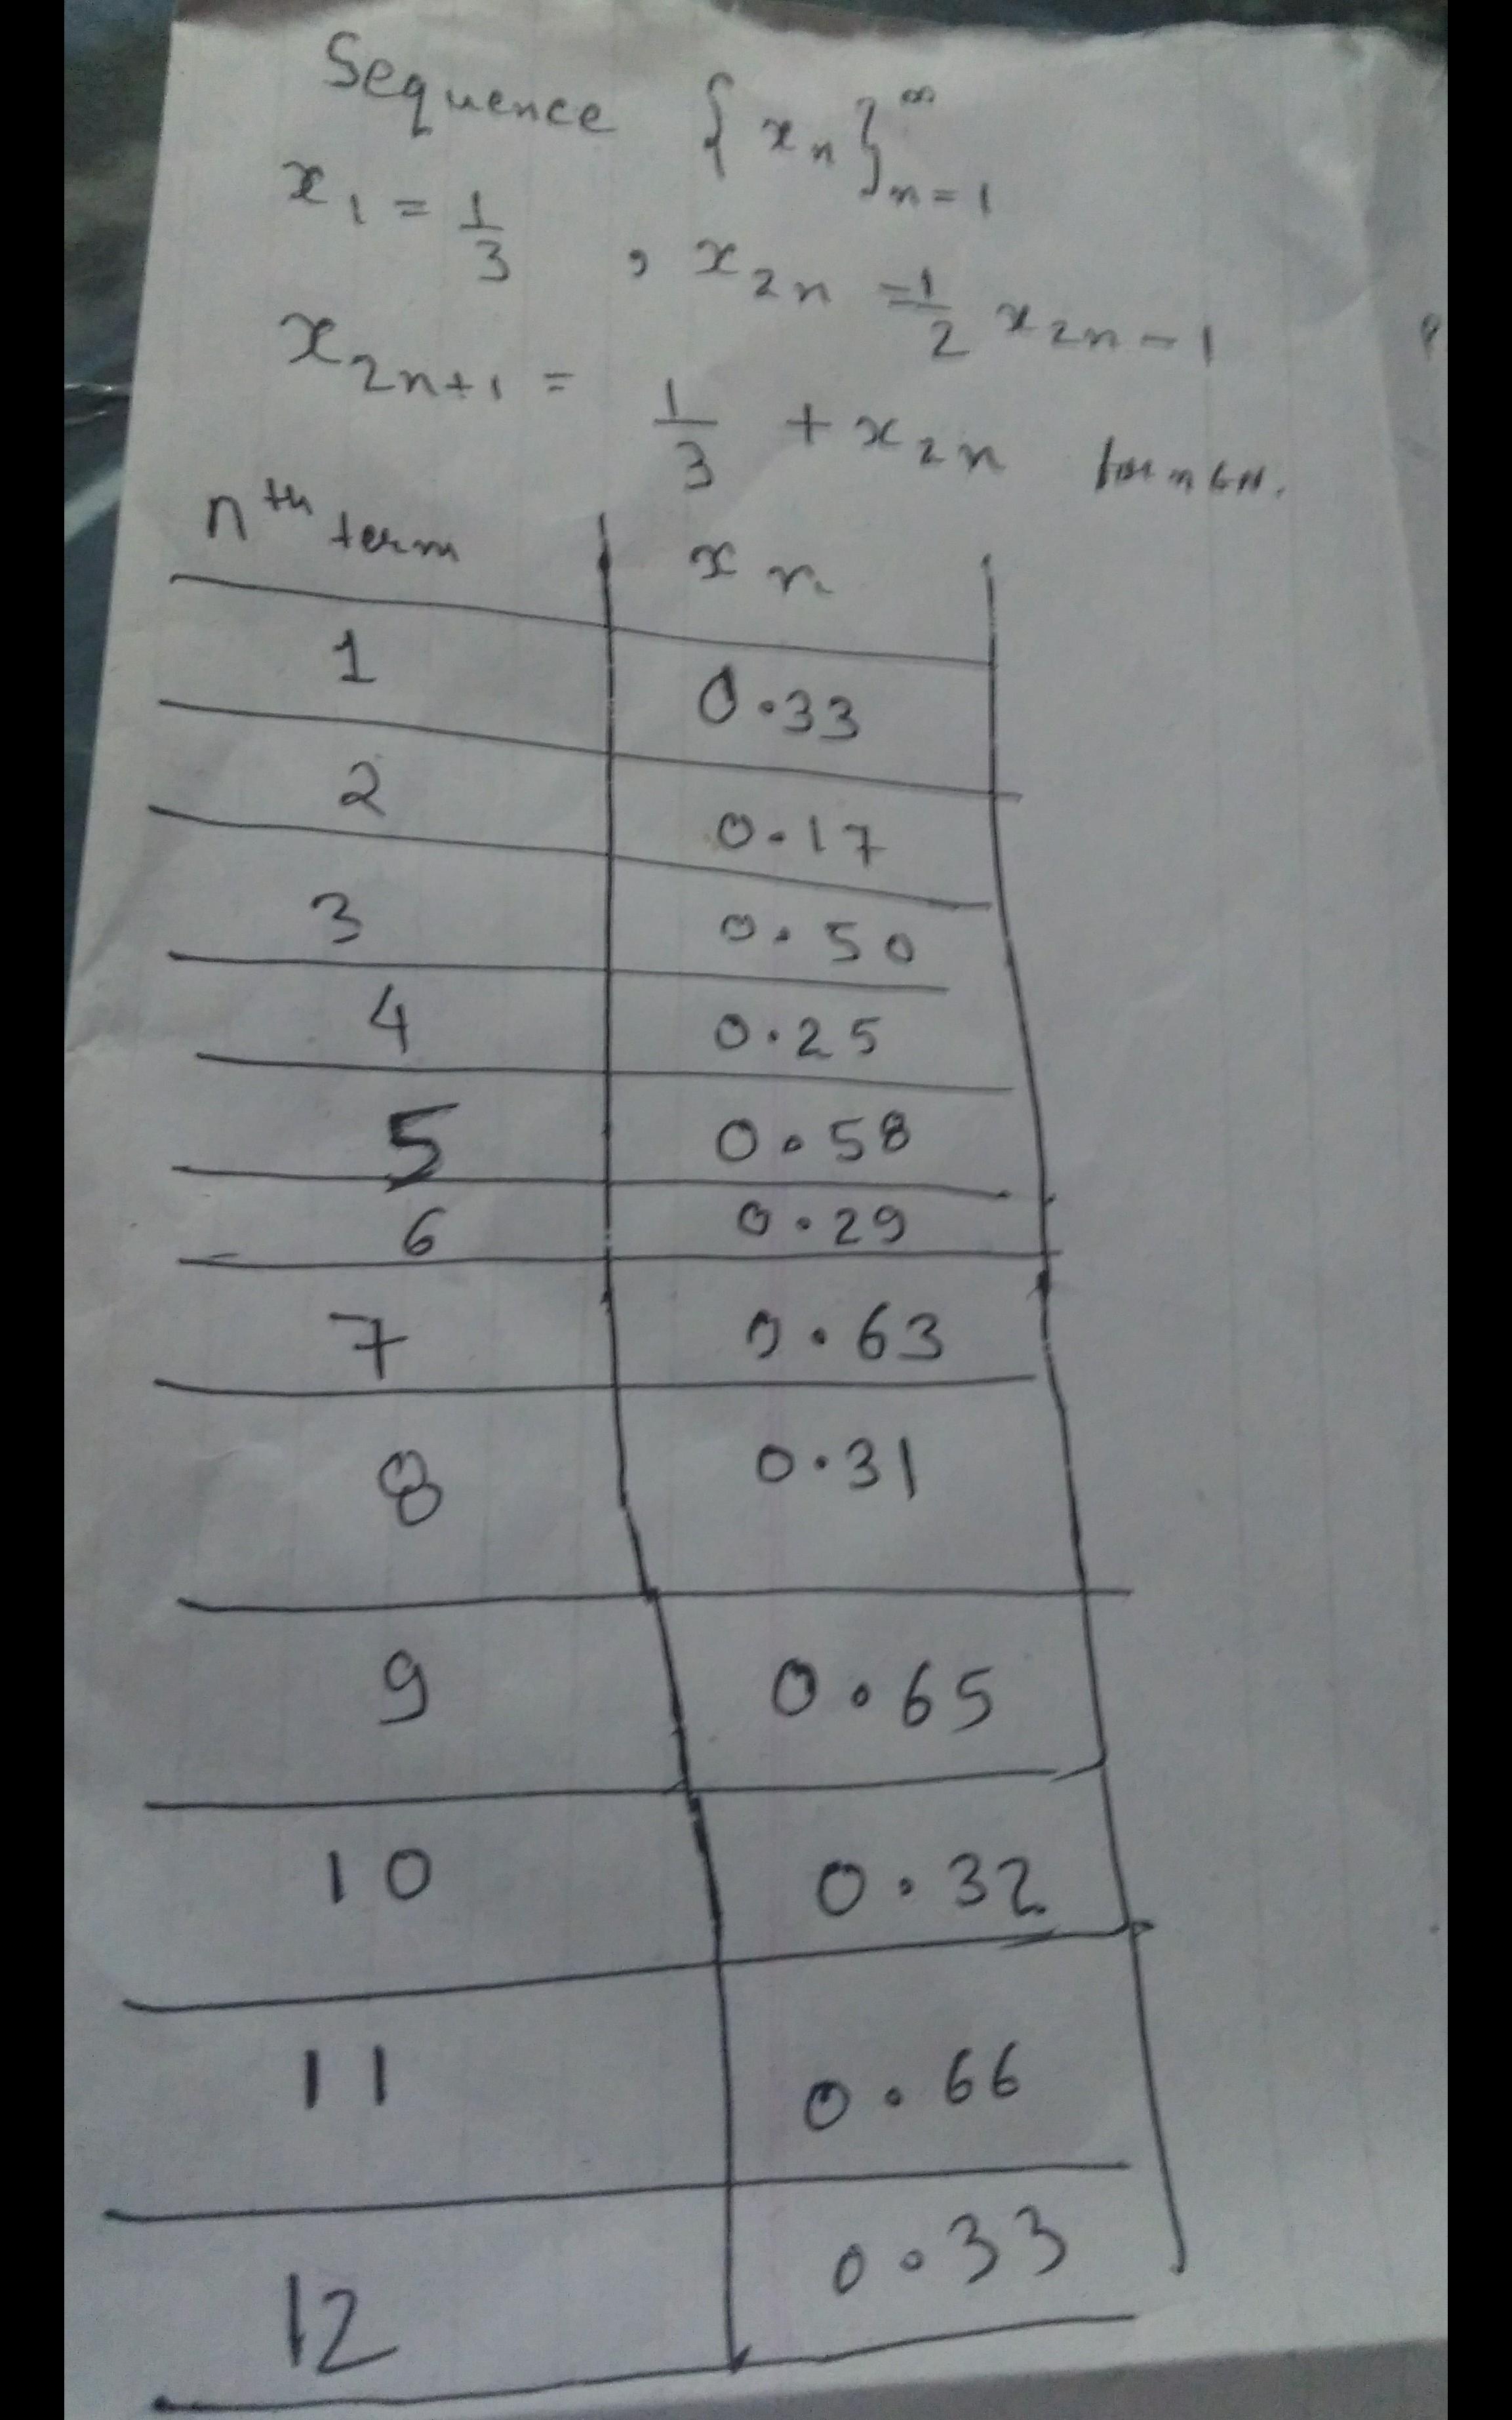 Sequence {xₙ}∞ₙ₌₁
x₁ = 1/3 , x₂ₙ = 1/2 x₂ₙ₋₁
x₂ₙ₊₁ = 1/3 + x₂ₙ for n ∈ N.
nᵗʰ term xₙ
1 0.33
2 0.17
3 0.50
4 0.25
5 0.58
6 0.29
7 0.63
8 0.31
9 0.65
10 0.32
11 0.66
12 0.33